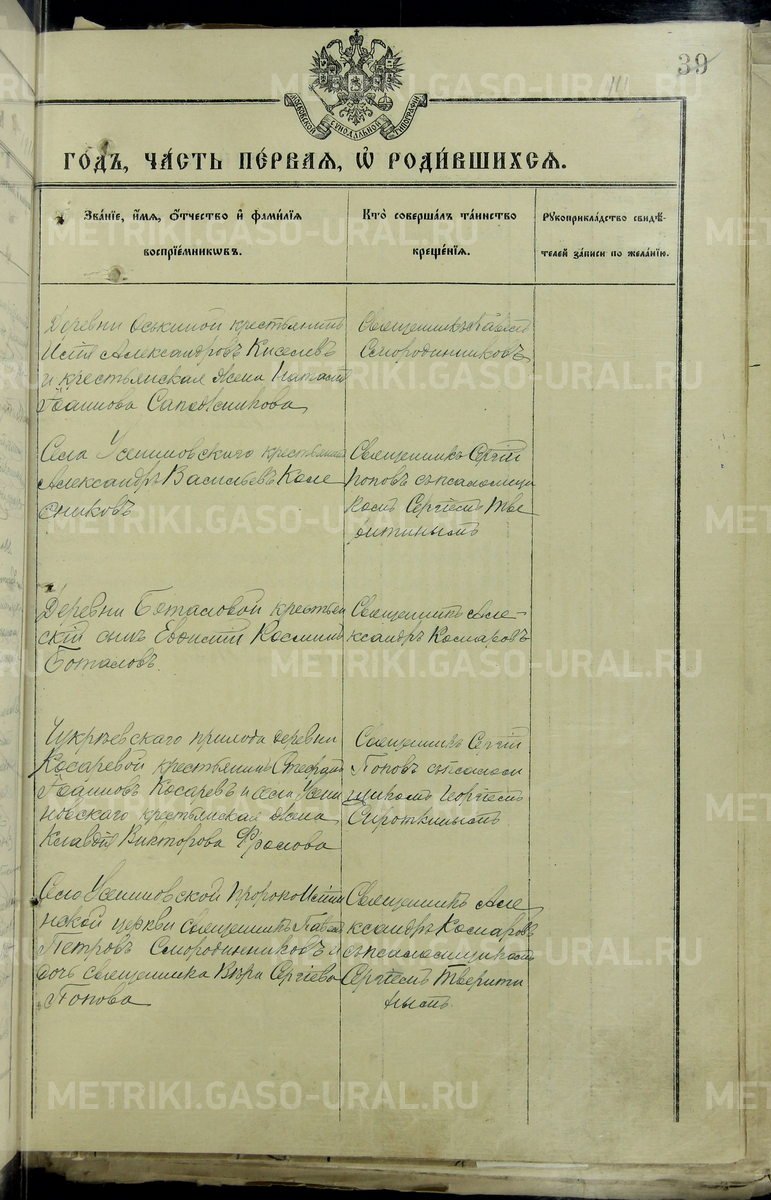 39
МОСКОВСКОЙ СѴНОДАЛЬНОЙ ТИПОГРАФІИ
ГО́ДЪ, ЧА́СТЬ ПЕ́РВАЯ, Ѡ҆ РОДИ́ВШИХСЯ.
Зва́нїе, и҆́мя, ѻ҆́тчество и҆ фами́лїя
воспрїе́мникѡвъ.
Кто̀ соверша́лъ та́инство
креще́нїя.
Рꙋкоприкла́дство свидѣ́-
телей за́писи по жела́нїю.
Деревни Оськиной крестьянинъ
Александровъ Киселевъ
и крестьянская жена
Іоаннова Сапожникова
Священникъ Павелъ
Смородинниковъ
Села Усениновскаго крестьянинъ
Александръ Васильевъ Коле
сниковъ
Священникъ Сергій
Поповъ съ псаломщи
комъ Сергіемъ Тве
ритинымъ
Деревни Боталовой крестьян
скій сынъ Евдоким Космин
Боталовъ.
Священникъ Але-
ксандръ Комаровъ
прихода деревни
Косаревой крестьянинъ Стефанъ
Іоанновъ Косаревъ и села Усени
новскаго крестьянская жена
Клавдія Викторова Фролова
Священникъ Сергій
Поповъ съ псалом
щикомъ Георгіемъ
Сироткинымъ
Села Усениновской Пророко-Ильи
нской церкви священникъ Павелъ
Петровъ Смородинниковъ и
дочь священника Вѣра Сергіева
Попова
Священникъ Але
ксандръ Комаровъ
съ псаломщикомъ
Сергіемъ Тверити
нымъ
METRIKI.GASO-URAL.RU